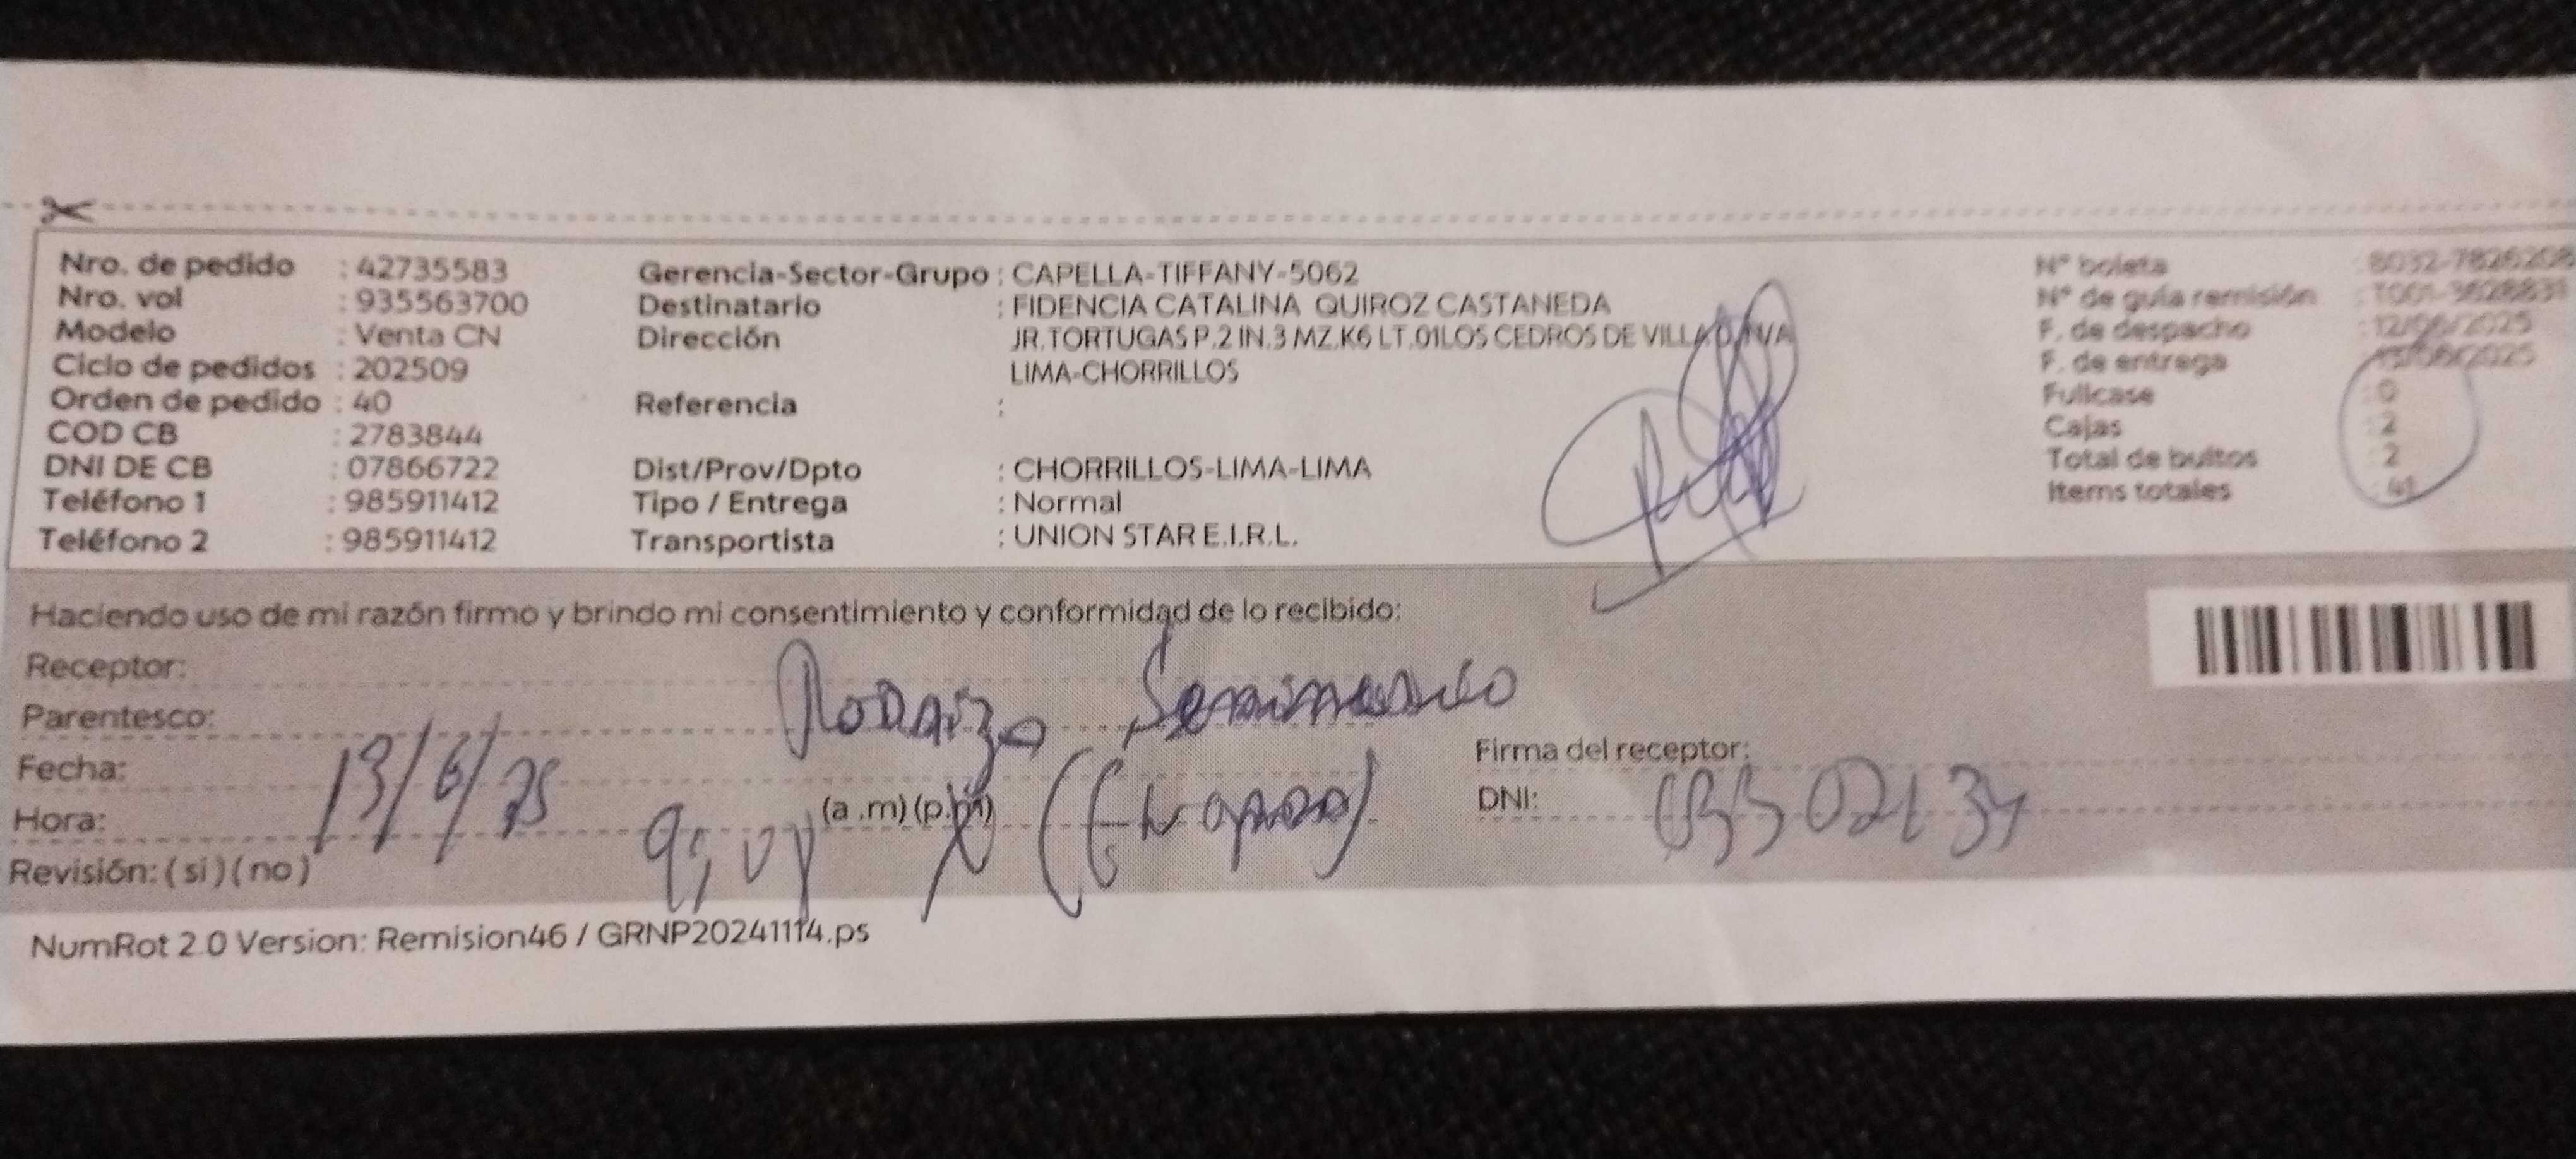 Nro. de pedido : 42735583
Nro. vol : 935563700
Modelo : Venta CN
Ciclo de pedidos : 202509
Orden de pedido : 40
COD CB : 2783844
DNI DE CB : 07866722
Teléfono 1 : 985911412
Teléfono 2 : 985911412
Gerencia-Sector-Grupo : CAPELLA-TIFFANY-5062
Destinatario : FIDENCIA CATALINA QUIROZ CASTANEDA
Dirección JR.TORTUGAS P.2 IN.3 MZ.K6 LT.01LOS CEDROS DE VILLA N/A
LIMA-CHORRILLOS
Referencia :
Dist/Prov/Dpto : CHORRILLOS-LIMA-LIMA
Tipo / Entrega : Normal
Transportista : UNION STAR E.I.R.L.
N° boleta
N° de guía remisión
F. de despacho : 12/06/2025
F. de entrega 13/06/2025
Fullcase : 0
Cajas : 2
Total de bultos : 2
Items totales : 41
Haciendo uso de mi razón firmo y brindo mi consentimiento y conformidad de lo recibido:
Receptor:
Parentesco:
Fecha: 13/6/25
Hora: (a .m) (p.m)
Revisión: ( si ) ( no )
Firma del receptor:
DNI:
NumRot 2.0 Version: Remision46 / GRNP20241114.ps